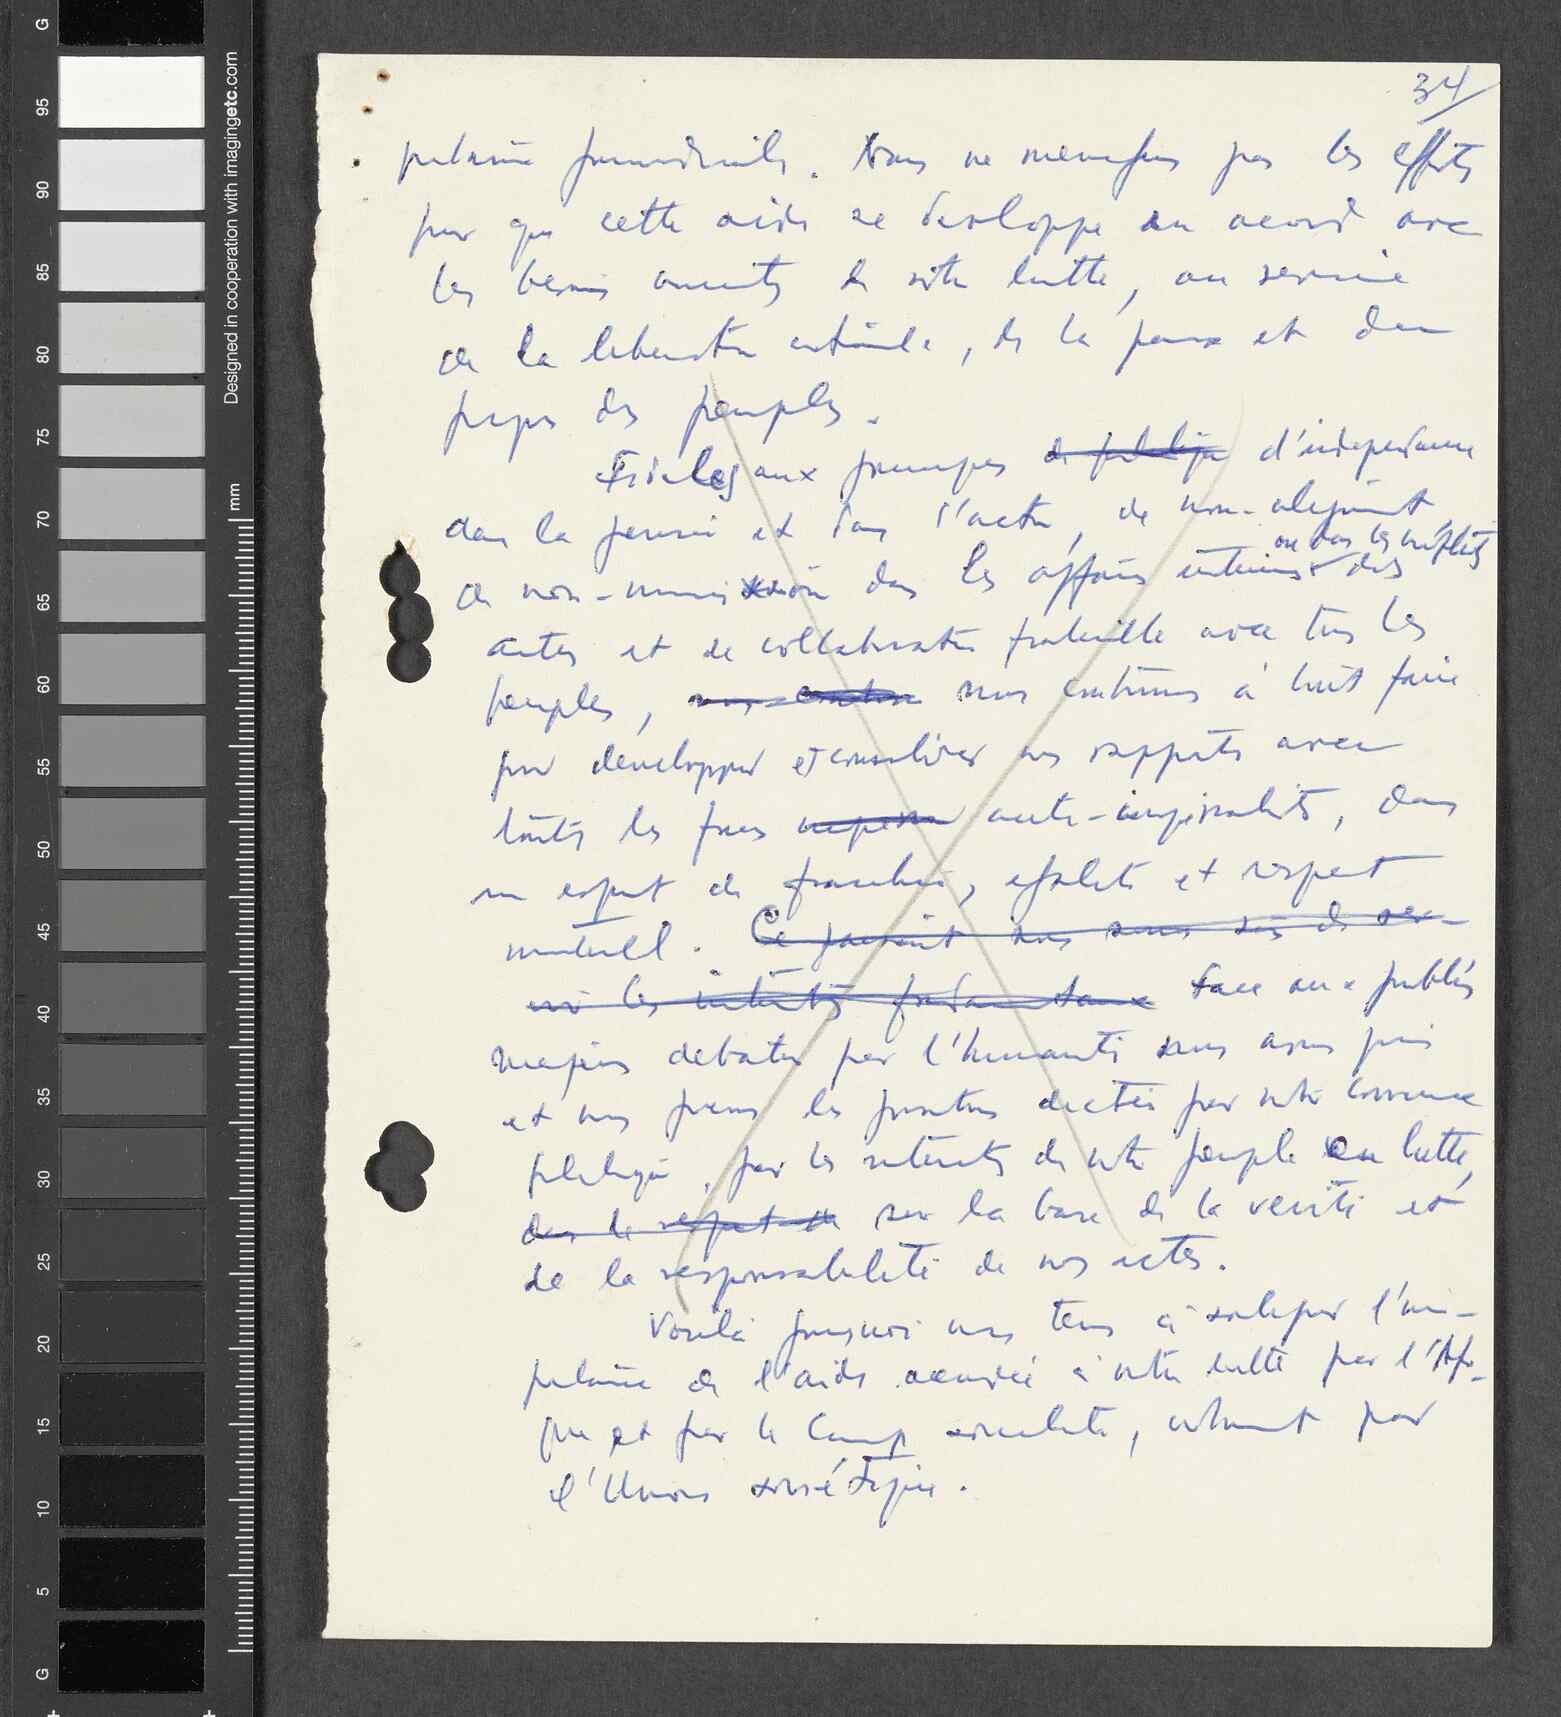 34
primordiale. Nous ne menageons pas les efforts
pour que cette aide se developpe en accord avec
les besoins de notre lutte, au service
de la liberation nationale, de la paix et du
progrès des peuples.
Fidèles aux principes de politique d'independance
dans la pensée et dans l'action, de non-alignement,
ou dans les conflits
de non-immixtion dans les affaires interieures des
autres et de collaboration fraternelle avec tous les
peuples, nous continuons nous continuons à tout faire
pour développer et consolider nos rapports avec
toutes les forces anti-imperialistes, dans
un esprit de franchise, egalité et respect
mutuell. Ce faisant nous sommes sûrs de ser-
vir les intérêts fondamentaux Face aux problèmes
majeurs debattus par l'humanité nous avons pris
et nous prenons les positions dictées par notre conscience
politique, par les interets de notre peuple en lutte,
dans le respect de sur la base de la verité et
de la responsabilité de nos actes.
Voilà pourquoi nous tenons à souligner l'im-
portance de l'aide accordée à notre lutte par l'Afri-
que et par le Camp socialiste, notamment par
l'Union soviétique.
Designed in cooperation with imagingetc.com
mm
G
95
90
85
80
75
70
65
60
55
50
45
40
35
30
25
20
15
10
5
G